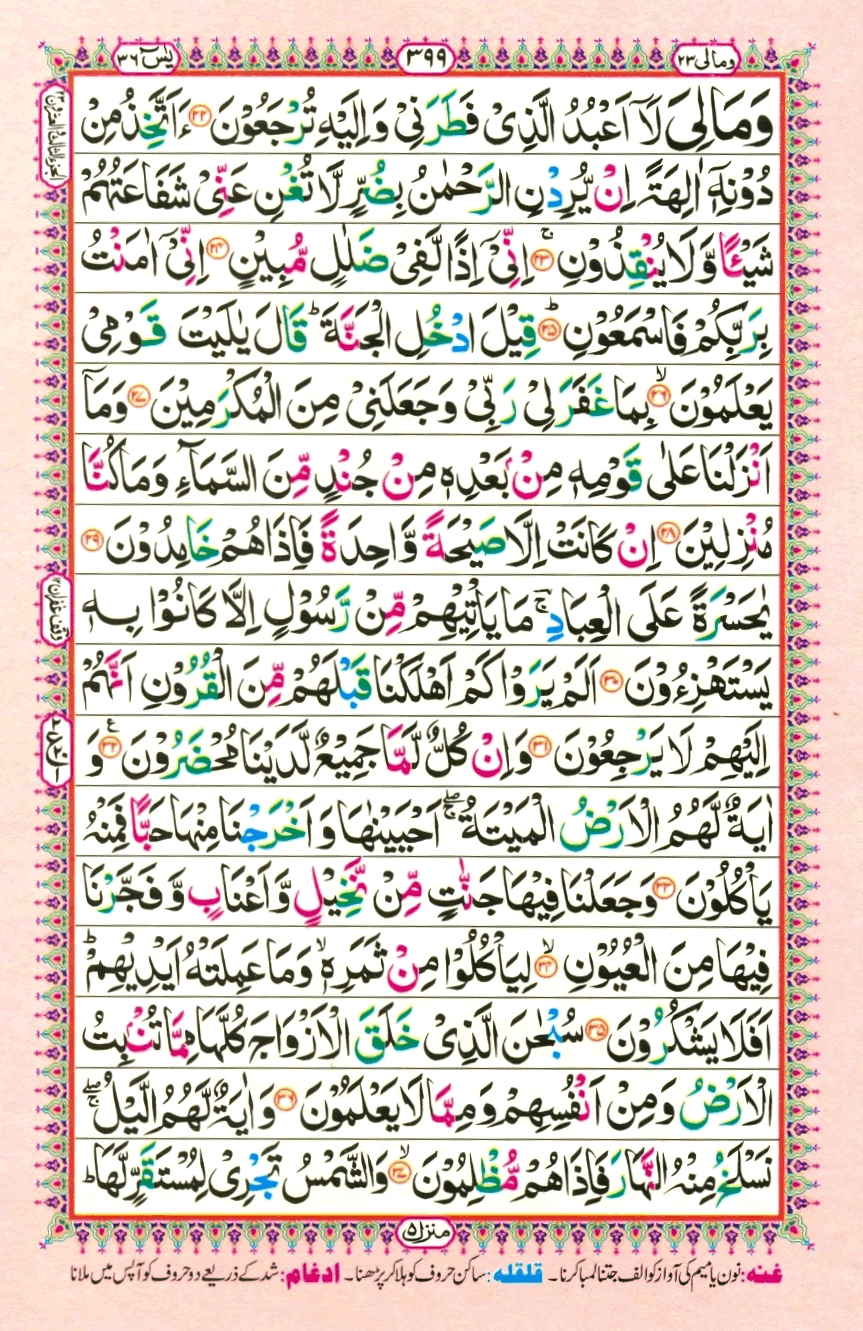 ومالی ۲۳
۳۹۹
یٰسٓ ۳۶
وَمَالِیَ لَاۤ اَعْبُدُ الَّذِیْ فَطَرَنِیْ وَاِلَیْهِ تُرْجَعُوْنَ ﴿۲۲﴾ ءَاَتَّخِذُ مِنْ
دُوْنِهٖۤ اٰلِهَةً اِنْ یُّرِدْنِ الرَّحْمٰنُ بِضُرٍّ لَّا تُغْنِ عَنِّیْ شَفَاعَتُهُمْ
شَیْـًٔا وَّلَا یُنْقِذُوْنِ ﴿۲۳﴾ۚ اِنِّیْۤ اِذًا لَّفِیْ ضَلٰلٍ مُّبِیْنٍ ﴿۲۴﴾ اِنِّیْۤ اٰمَنْتُ
بِرَبِّكُمْ فَاسْمَعُوْنِ ﴿۲۵﴾ؕ قِیْلَ ادْخُلِ الْجَنَّةَ ؕ قَالَ یٰلَیْتَ قَوْمِیْ
یَعْلَمُوْنَ ﴿۲۶﴾ۙ بِمَا غَفَرَ لِیْ رَبِّیْ وَجَعَلَنِیْ مِنَ الْمُكْرَمِیْنَ ﴿۲۷﴾ وَمَاۤ
اَنْزَلْنَا عَلٰی قَوْمِهٖ مِنْۢ بَعْدِهٖ مِنْ جُنْدٍ مِّنَ السَّمَآءِ وَمَا كُنَّا
مُنْزِلِیْنَ ﴿۲۸﴾ اِنْ كَانَتْ اِلَّا صَیْحَةً وَّاحِدَةً فَاِذَا هُمْ خَامِدُوْنَ ﴿۲۹﴾
یٰحَسْرَةً عَلَی الْعِبَادِ ۚؔ مَا یَاْتِیْهِمْ مِّنْ رَّسُوْلٍ اِلَّا كَانُوْا بِهٖ
یَسْتَهْزِءُوْنَ ﴿۳۰﴾ اَلَمْ یَرَوْا كَمْ اَهْلَكْنَا قَبْلَهُمْ مِّنَ الْقُرُوْنِ اَنَّهُمْ
اِلَیْهِمْ لَا یَرْجِعُوْنَ ﴿۳۱﴾ وَاِنْ كُلٌّ لَّمَّا جَمِیْعٌ لَّدَیْنَا مُحْضَرُوْنَ ﴿۳۲﴾ وَ
اٰیَةٌ لَّهُمُ الْاَرْضُ الْمَیْتَةُ ۚۖ اَحْیَیْنٰهَا وَاَخْرَجْنَا مِنْهَا حَبًّا فَمِنْهُ
یَاْكُلُوْنَ ﴿۳۳﴾ وَجَعَلْنَا فِیْهَا جَنّٰتٍ مِّنْ نَّخِیْلٍ وَّاَعْنَابٍ وَّفَجَّرْنَا
فِیْهَا مِنَ الْعُیُوْنِ ﴿۳۴﴾ۙ لِیَاْكُلُوْا مِنْ ثَمَرِهٖ ۙ وَمَا عَمِلَتْهُ اَیْدِیْهِمْ ؕ
اَفَلَا یَشْكُرُوْنَ ﴿۳۵﴾ سُبْحٰنَ الَّذِیْ خَلَقَ الْاَزْوَاجَ كُلَّهَا مِمَّا تُنْۢبِتُ
الْاَرْضُ وَمِنْ اَنْفُسِهِمْ وَمِمَّا لَا یَعْلَمُوْنَ ﴿۳۶﴾ وَاٰیَةٌ لَّهُمُ الَّیْلُ ۚۖ
نَسْلَخُ مِنْهُ النَّهَارَ فَاِذَا هُمْ مُّظْلِمُوْنَ ﴿۳۷﴾ۙ وَالشَّمْسُ تَجْرِیْ لِمُسْتَقَرٍّ لَّهَا ؕ
الجزء الثالث والعشرون ۲۳
وقف غفران
منزل ۵
غنه: نون یا میم کی آواز کو الف جتنا لمبا کرنا۔ قلقله: ساکن حروف کو ہلا کر پڑھنا۔ ادغام: شد کے ذریعے دو حروف کو آپس میں ملانا